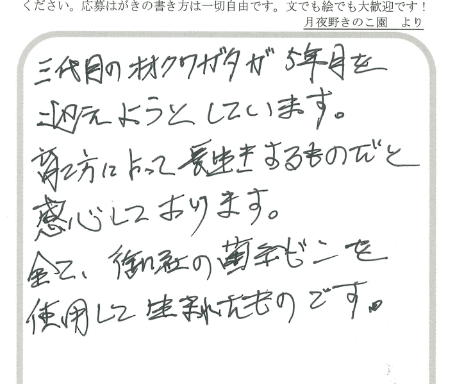 ください。応募はがきの書き方は一切自由です。文でも絵でも大歓迎です!
月夜野きのこ園 より
三代目のオオクワガタが5年目を
迎えようとしています。
育て方によって長生きするものだと
感心しております。
全て、御社の菌糸ビンを
使用して生まれたものです。